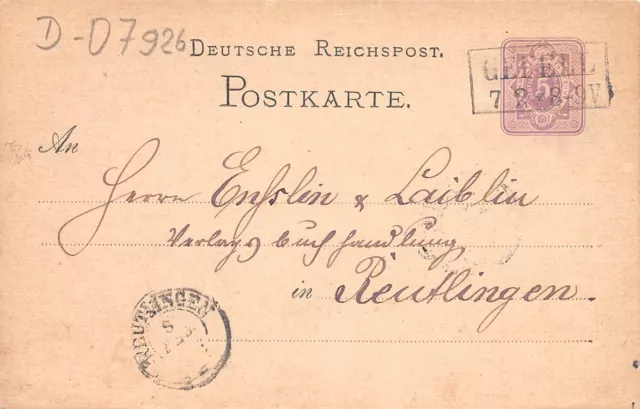 D-07926
DEUTSCHE REICHSPOST.
GEFELL
7 2 * 8-9V
POSTKARTE.
An
Herrn Enßlin & Laiblin
Verlagsbuchhandlung
in Reutlingen.
REUTLINGEN
8